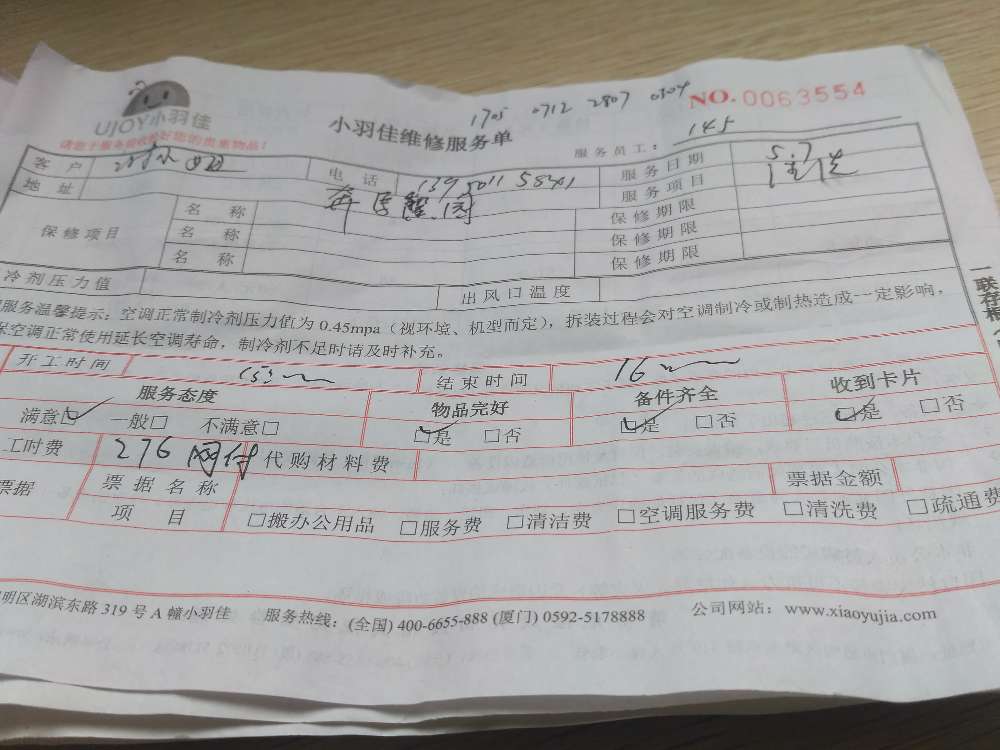 UJOY小羽佳
1705 0712 2807 0304
NO. 0063554
小羽佳维修服务单
服务员工： 145
客户 电话 服务日期 5.7
地址 服务项目 清洗
保修项目 名称 保修期限
名称 保修期限
名称 保修期限
冷剂压力值 出风口温度
服务温馨提示：空调正常制冷剂压力值为0.45mpa（视环境、机型而定），拆装过程会对空调制冷或制热造成一定影响，
保空调正常使用延长空调寿命，制冷剂不足时请及时补充。
开工时间 结束时间 16
服务态度 物品完好 备件齐全 收到卡片
满意☑ 一般□ 不满意□ ☑是 □否 ☑是 □否 ☑是 □否
工时费 276 网付 代购材料费
票据 票据名称 票据金额
项目 □搬办公用品 □服务费 □清洁费 □空调服务费 □清洗费 □疏通费
明区湖滨东路319号A幢小羽佳 服务热线：(全国) 400-6655-888 (厦门) 0592-5178888 公司网站：www.xiaoyujia.com
一联存根